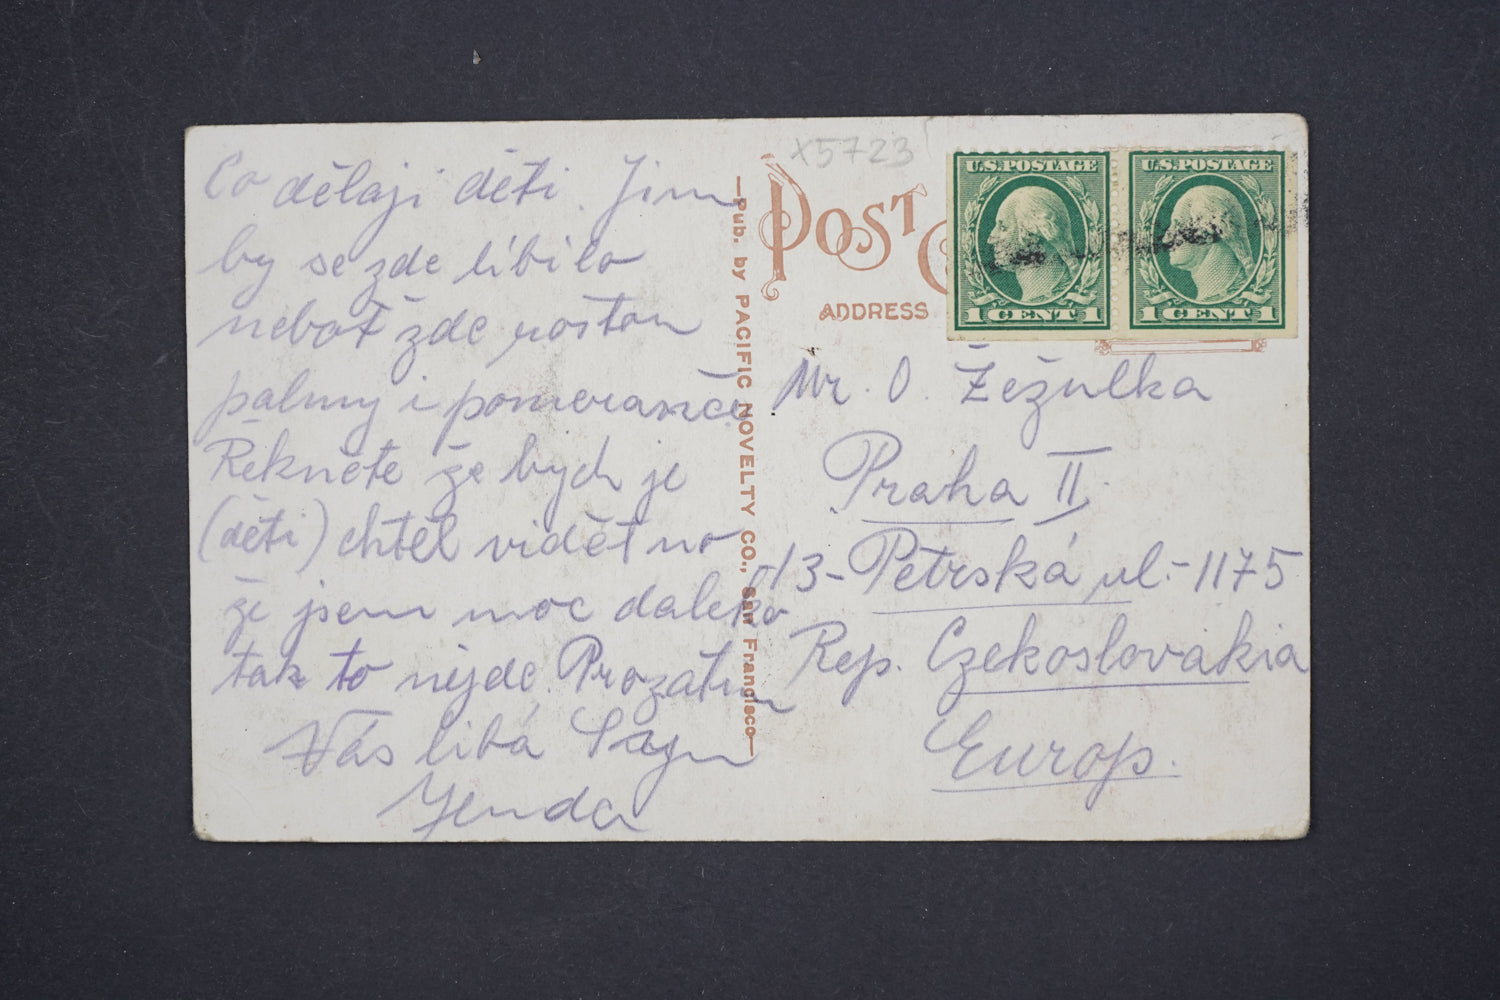 Co dělaji děti. Jim
by se zde líbilo
neboť zde rostou
palmy i pomeranče
Řekněte že bych je
(děti) chtěl vidět no
že jsem moc daleko
tak to nejde. Prozatim
Vás libá Syn
Jenda
—Pub. by PACIFIC NOVELTY CO., San Francisco—
X5723
POST
ADDRESS
U.S.POSTAGE
1 CENT 1
U.S.POSTAGE
1 CENT 1
Mr. O. Žežulka
Praha II.
13-Petrská ul.-1175
Rep. Czekoslovakia
Europ.